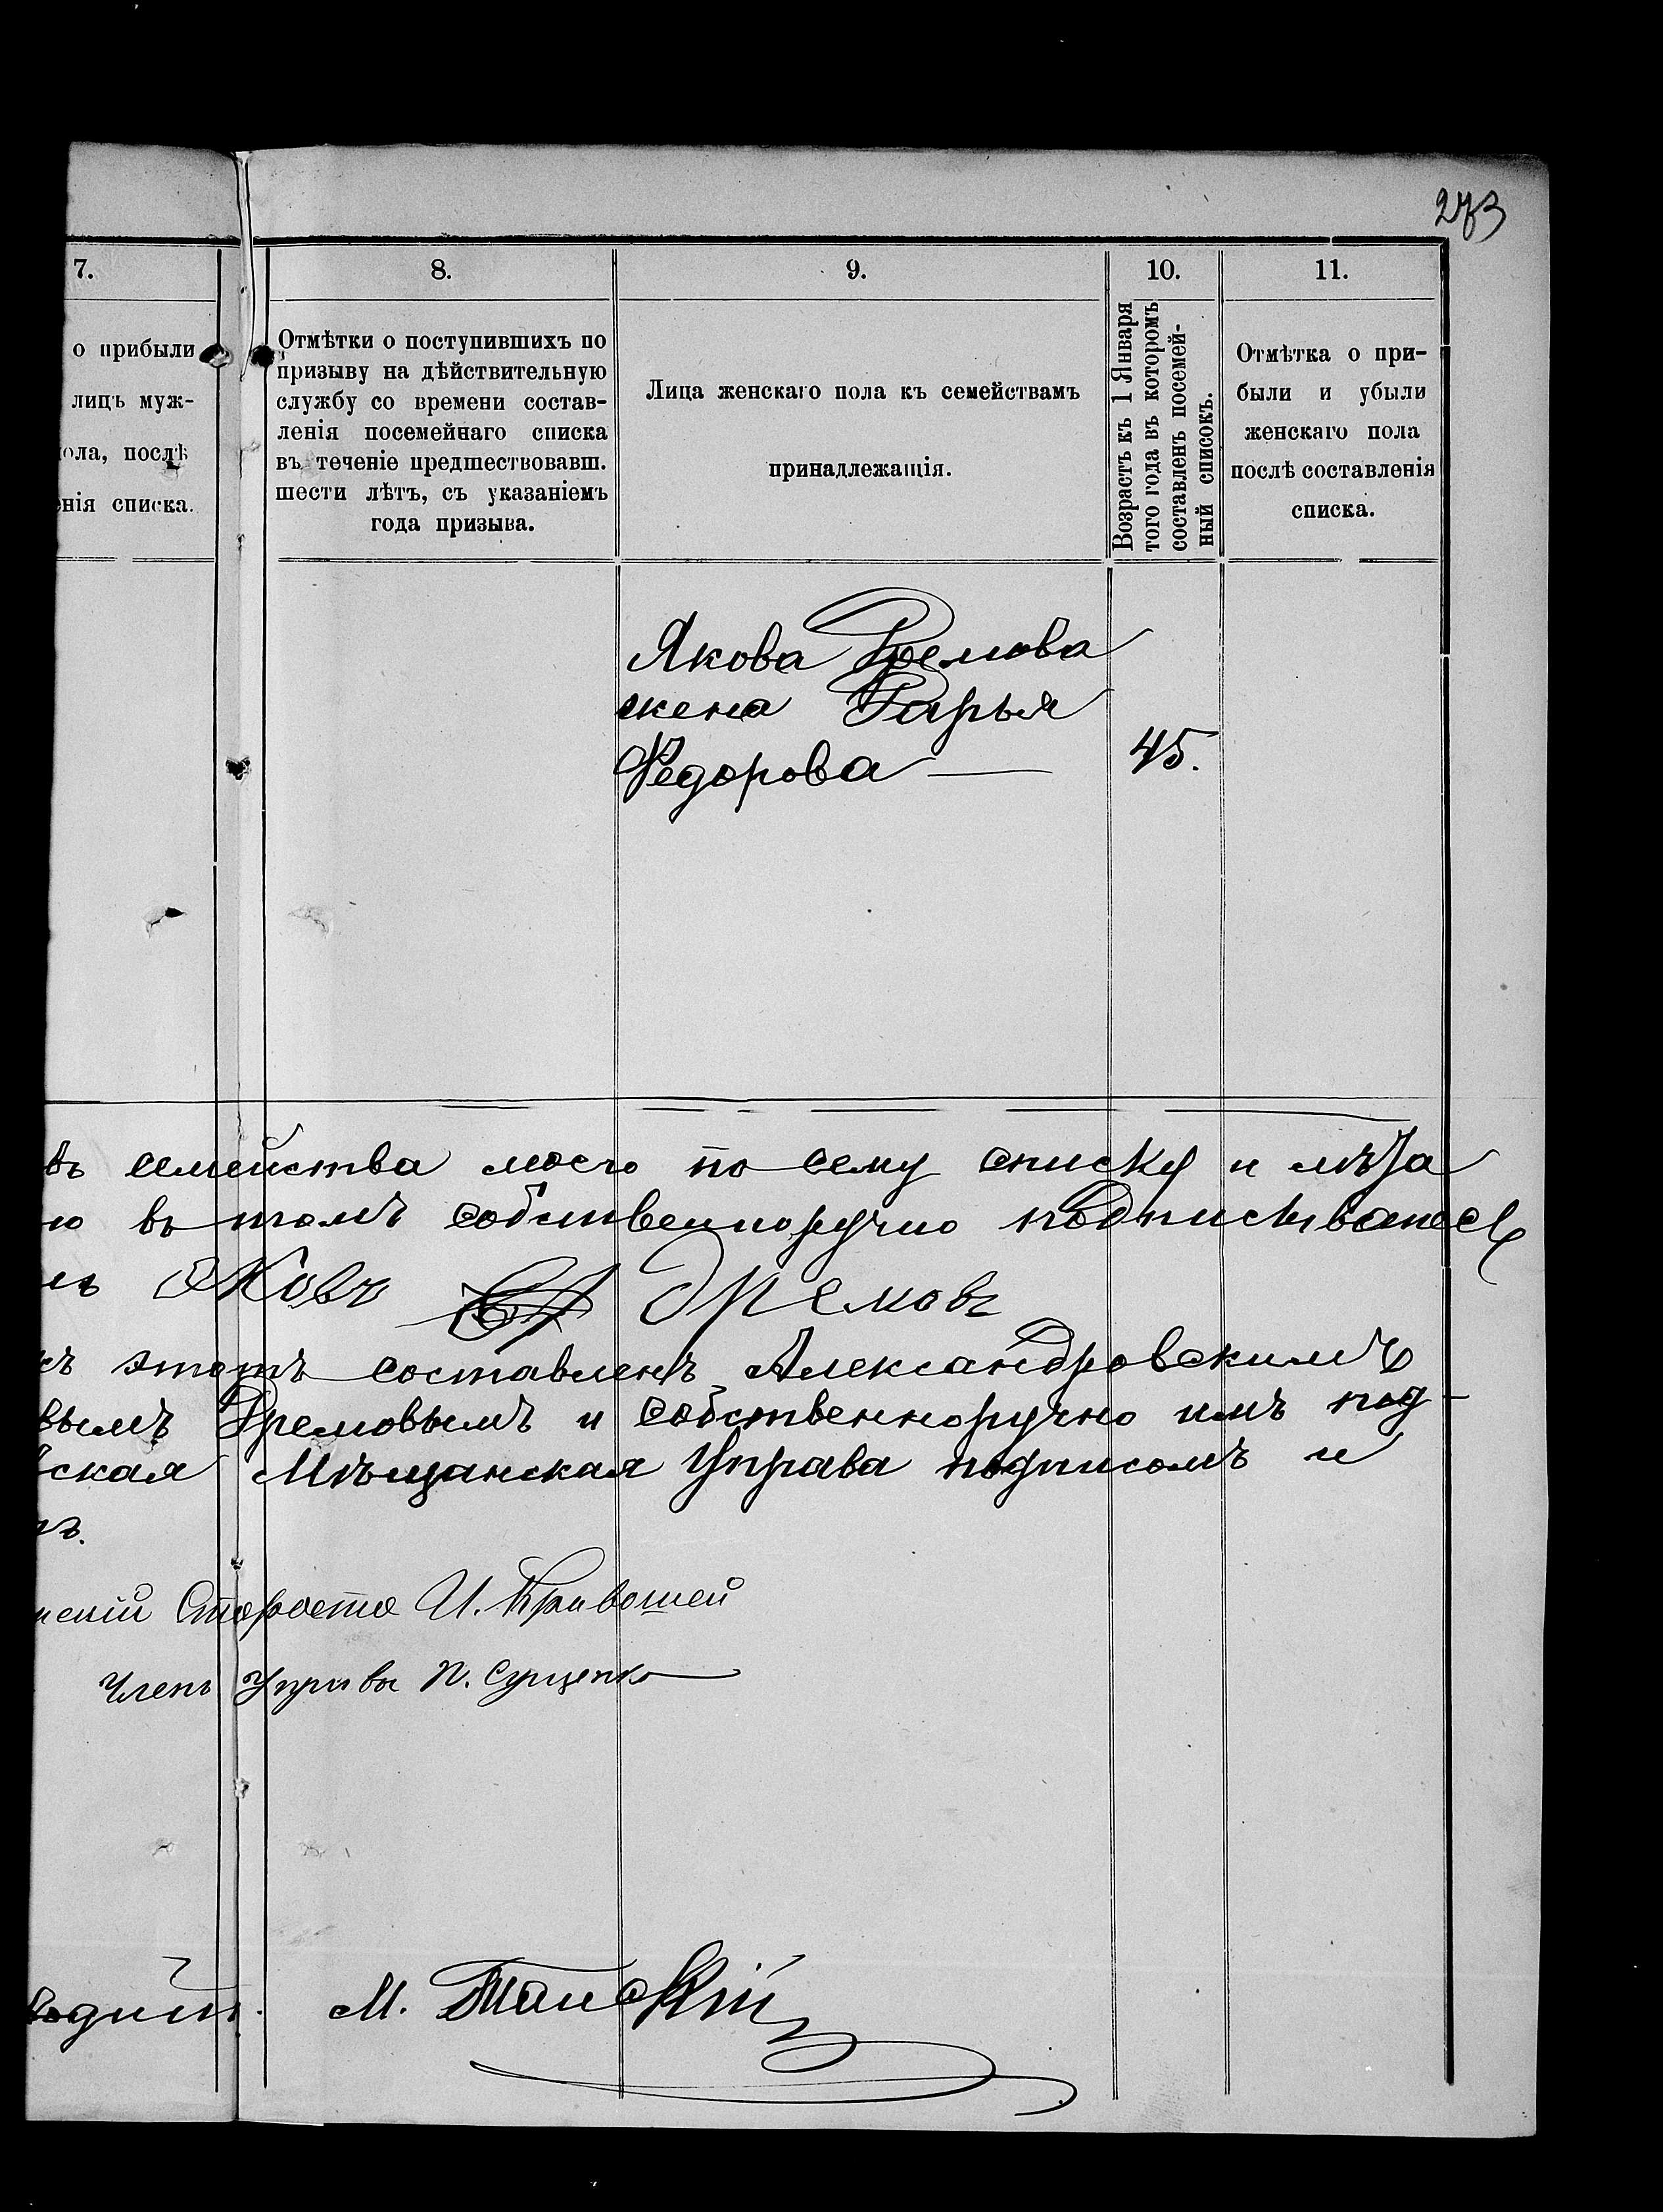 273
7.
8.
9.
10.
11.
о прибыли
лицъ муж-
ола, послѣ
енія списка.
Отмѣтки о поступившихъ по
призыву на дѣйствительную
службу со времени состав-
ленія посемейнаго списка
въ теченіе предшествовавш.
шести лѣтъ, съ указаніемъ
года призыва.
Лица женскаго пола къ семействамъ
принадлежащія.
Возрастъ къ 1 Января
того года въ которомъ
составленъ посемей-
ный списокъ.
Отмѣтка о при-
были и убыли
женскаго пола
послѣ составленія
списка.
Якова Дремова
жена Дарья
Федорова — 45.
въ семейства моего по сему списку и лѣта
ю въ томъ собственноручно подписываюсь
Яковъ Дремовъ
къ этотъ составленъ Александровскимъ
вымъ Дремовымъ и собственноручно имъ под-
ская Мѣщанская Управа подписомъ и
ъ.
нскій Староста И. Кривошей
Членъ Управы П. Сущенко
М. Танскій